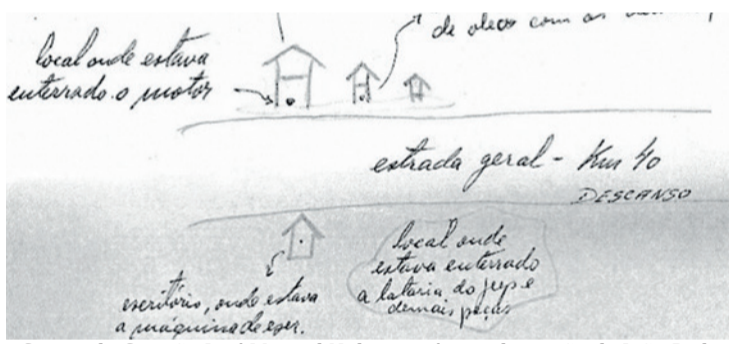 de oleos com as
local onde estava
enterrado o motor
estrada geral - Km 40
DESCANSO
local onde
estava enterrado
a lataria do jeep e
demais peças
escritório, onde estava
a máquina de escr.